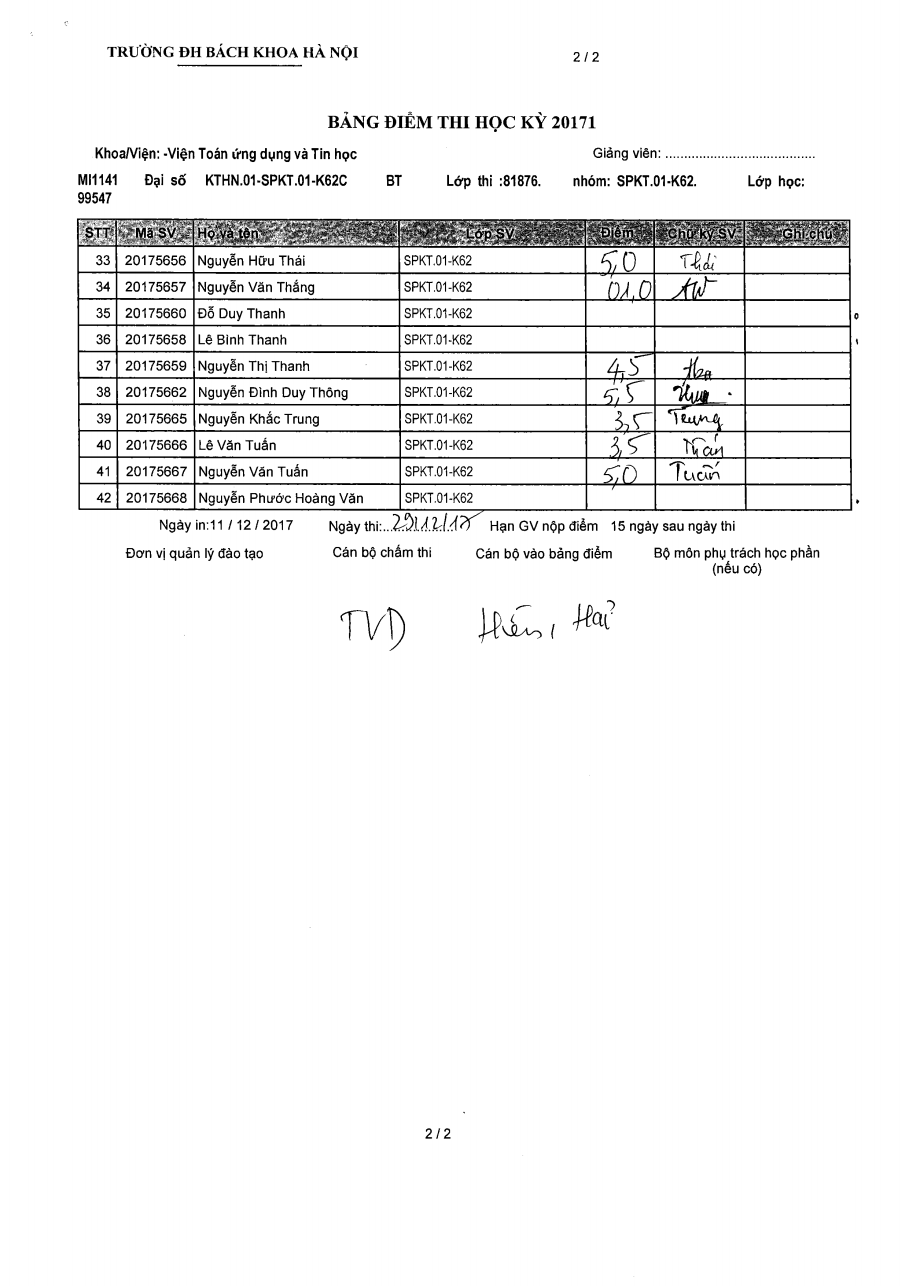 TRƯỜNG ĐH BÁCH KHOA HÀ NỘI 2 / 2
BẢNG ĐIỂM THI HỌC KỲ 20171
Khoa/Viện: -Viện Toán ứng dụng và Tin học Giảng viên: ........................................
MI1141 Đại số KTHN.01-SPKT.01-K62C BT Lớp thi :81876. nhóm: SPKT.01-K62. Lớp học:
99547
STT Mã SV Họ và tên Lớp SV Điểm Chữ ký SV Ghi chú
33 20175656 Nguyễn Hữu Thái SPKT.01-K62 5,0 Thái
34 20175657 Nguyễn Văn Thắng SPKT.01-K62 01,0
35 20175660 Đỗ Duy Thanh SPKT.01-K62
36 20175658 Lê Bình Thanh SPKT.01-K62
37 20175659 Nguyễn Thị Thanh SPKT.01-K62 4,5
38 20175662 Nguyễn Đình Duy Thông SPKT.01-K62 5,5
39 20175665 Nguyễn Khắc Trung SPKT.01-K62 3,5 Trung
40 20175666 Lê Văn Tuấn SPKT.01-K62 3,5
41 20175667 Nguyễn Văn Tuấn SPKT.01-K62 5,0 Tuấn
42 20175668 Nguyễn Phước Hoàng Văn SPKT.01-K62
Ngày in:11 / 12 / 2017 Ngày thi:..29/12/17 Hạn GV nộp điểm 15 ngày sau ngày thi
Đơn vị quản lý đào tạo Cán bộ chấm thi Cán bộ vào bảng điểm Bộ môn phụ trách học phần
(nếu có)
TVD Hiền, Hải
2 / 2